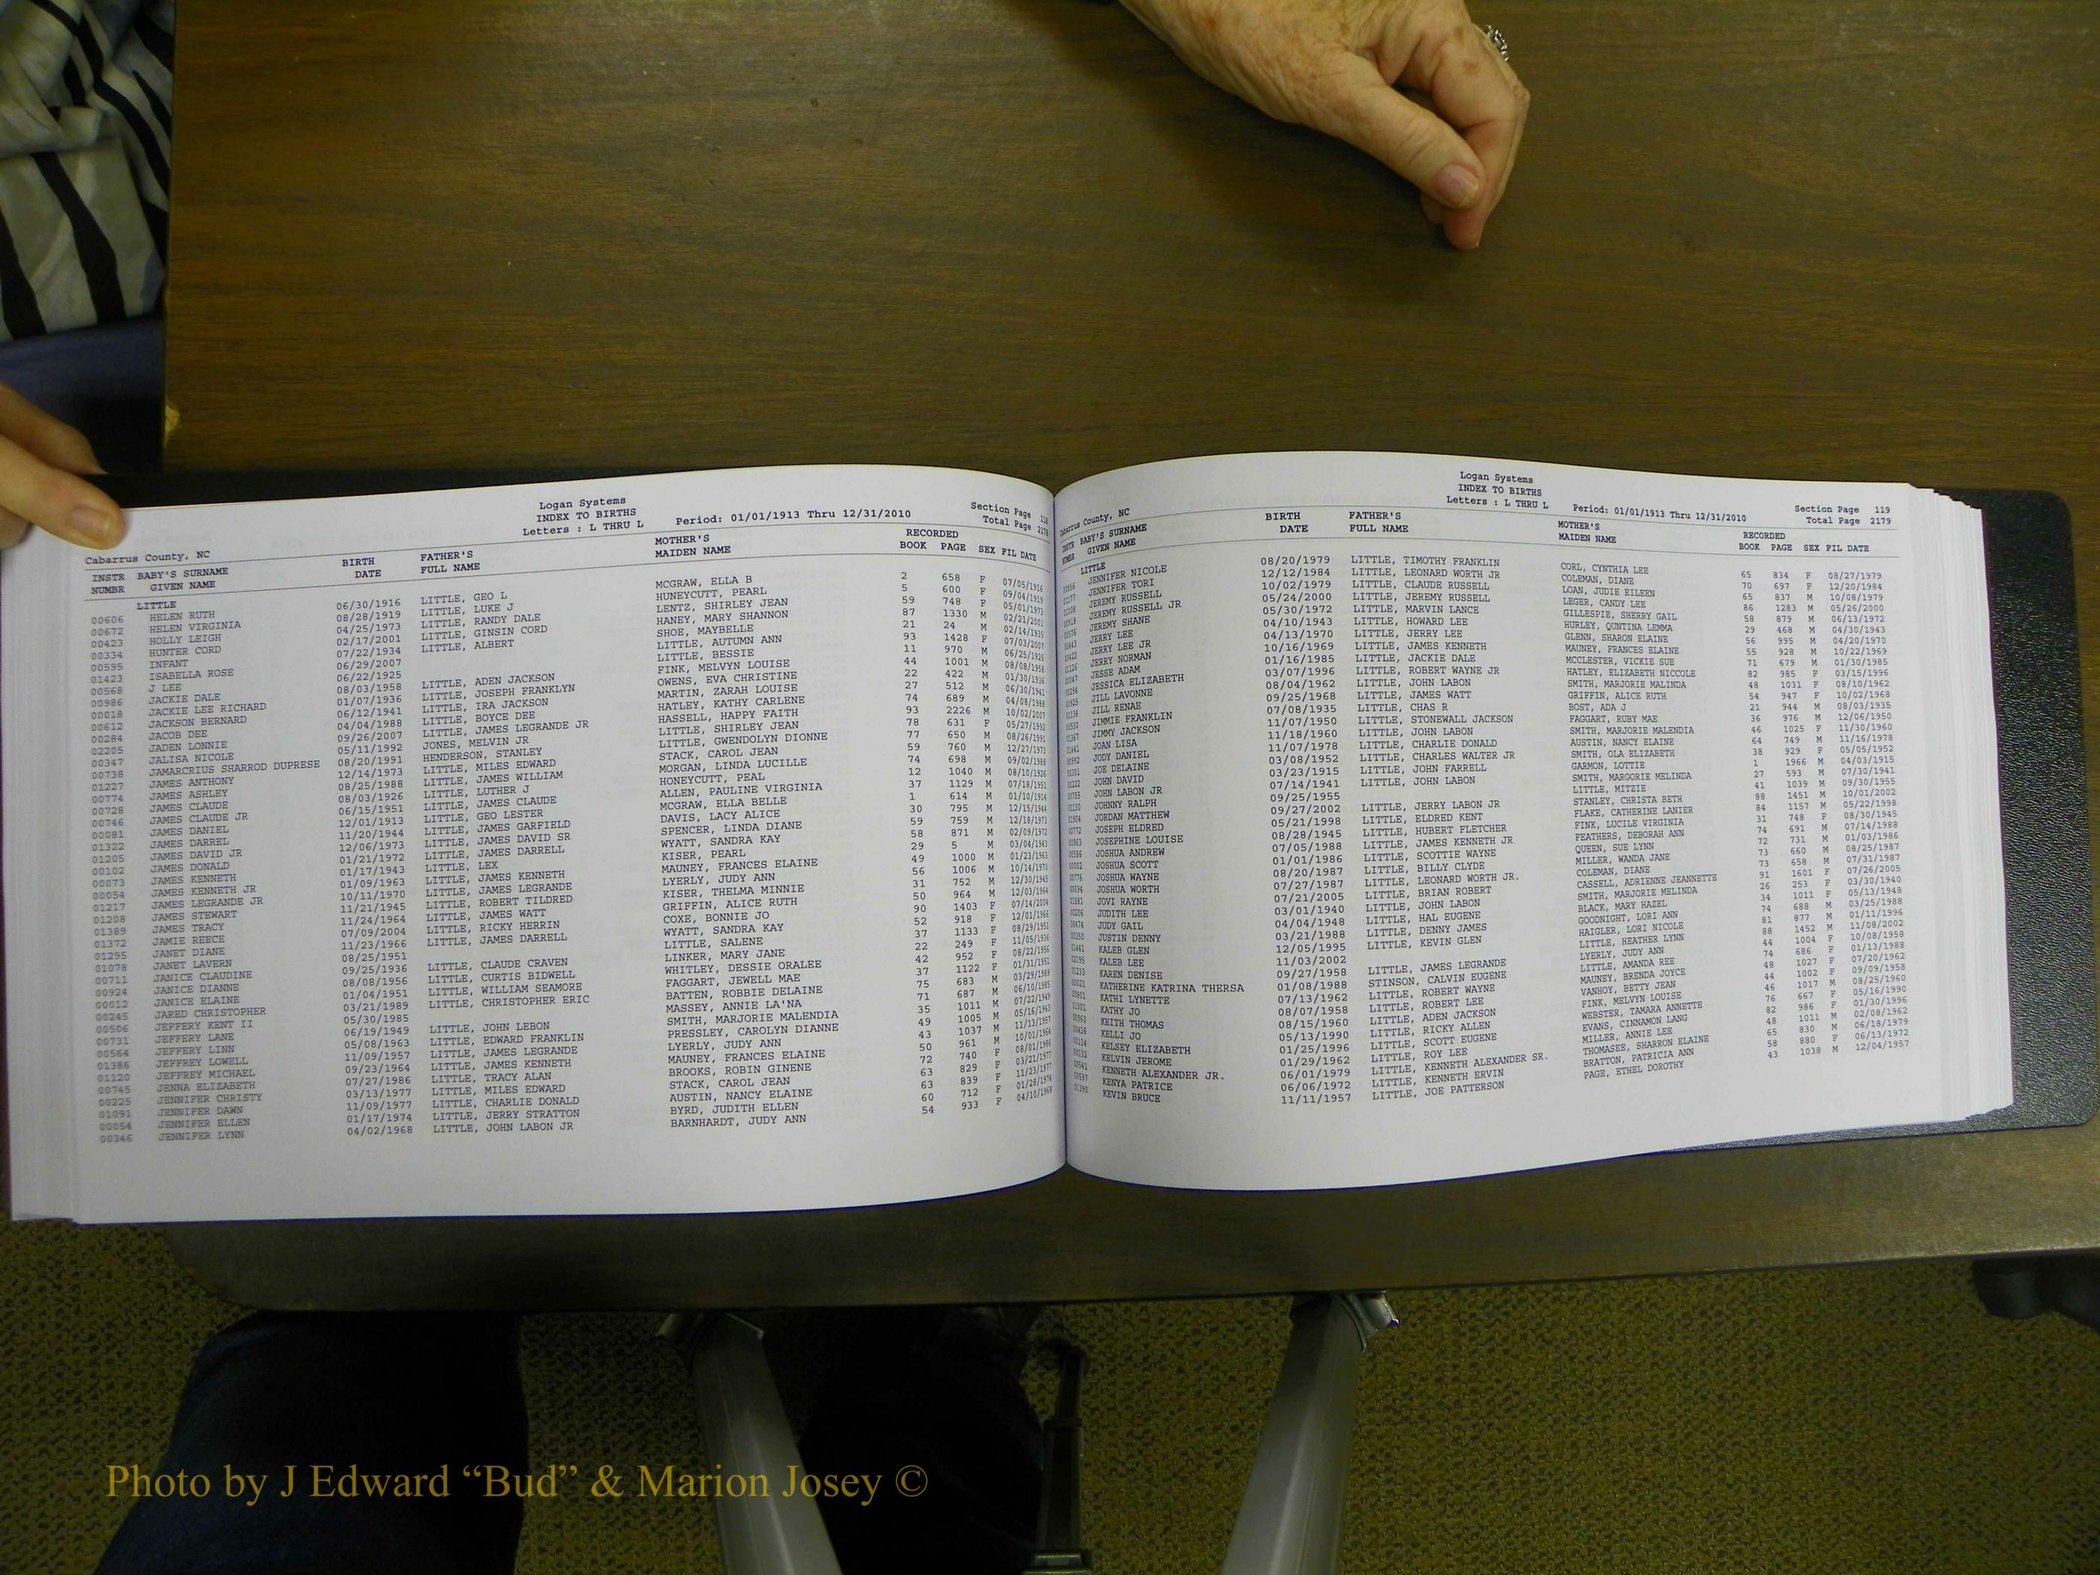 Logan Systems
INDEX TO BIRTHS
Cabarrus County, NC Letters : L THRU L Period: 01/01/1913 Thru 12/31/2010 Section Page 118
Total Page 2178
INSTR BABY'S SURNAME BIRTH FATHER'S MOTHER'S RECORDED
NUMBR GIVEN NAME DATE FULL NAME MAIDEN NAME BOOK PAGE SEX FIL DATE
LITTLE
00606 HELEN RUTH 06/30/1916 LITTLE, GEO L MCGRAW, ELLA B 2 658 F 07/05/1916
00672 HELEN VIRGINIA 08/28/1919 LITTLE, LUKE J HUNEYCUTT, PEARL 5 600 F 09/04/1919
00423 HOLLY LEIGH 04/25/1973 LITTLE, RANDY DALE LENTZ, SHIRLEY JEAN 59 748 F 05/01/1973
00334 HUNTER CORD 02/17/2001 LITTLE, GINSIN CORD HANEY, MARY SHANNON 87 1330 M 02/21/2001
00595 INFANT 07/22/1934 LITTLE, ALBERT SHOE, MAYBELLE 21 24 M 02/14/1935
01423 ISABELLA ROSE 06/29/2007 LITTLE, AUTUMN ANN 93 1428 F 07/03/2007
00568 J LEE 06/22/1925 LITTLE, BESSIE 11 970 M 06/25/1925
00986 JACKIE DALE 08/03/1958 LITTLE, ADEN JACKSON FINK, MELVYN LOUISE 44 1001 M 08/08/1958
00018 JACKIE LEE RICHARD 01/07/1936 LITTLE, JOSEPH FRANKLYN OWENS, EVA CHRISTINE 22 422 M 01/30/1936
00612 JACKSON BERNARD 06/12/1941 LITTLE, IRA JACKSON MARTIN, ZARAH LOUISE 27 512 M 06/30/1941
00284 JACOB DEE 04/04/1988 LITTLE, BOYCE DEE HATLEY, KATHY CARLENE 74 689 M 04/08/1988
02205 JADEN LONNIE 09/26/2007 LITTLE, JAMES LEGRANDE JR HASSELL, HAPPY FAITH 93 2226 M 10/02/2007
00347 JALISA NICOLE 05/11/1992 JONES, MELVIN JR LITTLE, SHIRLEY JEAN 78 631 F 05/27/1992
00738 JAMARCRIUS SHARROD DUPRESE 08/20/1991 HENDERSON, STANLEY LITTLE, GWENDOLYN DIONNE 77 650 M 08/26/1991
01227 JAMES ANTHONY 12/14/1973 LITTLE, MILES EDWARD STACK, CAROL JEAN 59 760 M 12/27/1973
00774 JAMES ASHLEY 08/25/1988 LITTLE, JAMES WILLIAM MORGAN, LINDA LUCILLE 74 698 M 09/02/1988
00728 JAMES CLAUDE 08/03/1926 LITTLE, LUTHER J HONEYCUTT, PEAL 12 1040 M 08/10/1926
00746 JAMES CLAUDE JR 06/15/1951 LITTLE, JAMES CLAUDE ALLEN, PAULINE VIRGINIA 37 1129 M 07/18/1951
00081 JAMES DANIEL 12/01/1913 LITTLE, GEO LESTER MCGRAW, ELLA BELLE 1 614 M 01/10/1914
01322 JAMES DARREL 11/20/1944 LITTLE, JAMES GARFIELD DAVIS, LACY ALICE 30 795 M 12/15/1944
01205 JAMES DAVID JR 12/06/1973 LITTLE, JAMES DAVID SR SPENCER, LINDA DIANE 59 759 M 12/18/1973
00102 JAMES DONALD 01/21/1972 LITTLE, JAMES DARRELL WYATT, SANDRA KAY 58 871 M 02/09/1972
00073 JAMES KENNETH 01/17/1943 LITTLE, LEX KISER, PEARL 29 5 M 03/04/1943
00054 JAMES KENNETH JR 01/09/1963 LITTLE, JAMES KENNETH MAUNEY, FRANCES ELAINE 49 1000 M 01/23/1963
01217 JAMES LEGRANDE JR 10/11/1970 LITTLE, JAMES LEGRANDE LYERLY, JUDY ANN 56 1006 M 10/14/1970
01208 JAMES STEWART 11/21/1945 LITTLE, ROBERT TILDRED KISER, THELMA MINNIE 31 752 M 12/30/1945
01389 JAMES TRACY 11/24/1964 LITTLE, JAMES WATT GRIFFIN, ALICE RUTH 50 964 M 12/03/1964
01372 JAMIE REECE 07/09/2004 LITTLE, RICKY HERRIN COXE, BONNIE JO 90 1403 F 07/14/2004
01295 JANET DIANE 11/23/1966 LITTLE, JAMES DARRELL WYATT, SANDRA KAY 52 918 F 12/01/1966
01078 JANET LAVERN 08/25/1951 LITTLE, SALENE 37 1133 F 08/29/1951
00711 JANICE CLAUDINE 09/25/1936 LITTLE, CLAUDE CRAVEN LINKER, MARY JANE 22 249 F 11/05/1936
00924 JANICE DIANNE 08/08/1956 LITTLE, CURTIS BIDWELL WHITLEY, DESSIE ORALEE 42 952 F 08/22/1956
00012 JANICE ELAINE 01/04/1951 LITTLE, WILLIAM SEAMORE FAGGART, JEWELL MAE 37 1122 F 01/31/1951
00245 JARED CHRISTOPHER 03/21/1989 LITTLE, CHRISTOPHER ERIC BATTEN, ROBBIE DELAINE 75 683 M 03/29/1989
00506 JEFFERY KENT II 05/30/1985 MASSEY, ANNIE LA'NA 71 687 M 06/10/1985
00731 JEFFERY LANE 06/19/1949 LITTLE, JOHN LEBON SMITH, MARJORIE MALENDIA 35 1011 M 07/22/1949
00564 JEFFERY LINN 05/08/1963 LITTLE, EDWARD FRANKLIN PRESSLEY, CAROLYN DIANNE 49 1005 M 05/16/1963
01386 JEFFREY LOWELL 11/09/1957 LITTLE, JAMES LEGRANDE LYERLY, JUDY ANN 43 1037 M 11/13/1957
01120 JEFFREY MICHAEL 09/23/1964 LITTLE, JAMES KENNETH MAUNEY, FRANCES ELAINE 50 961 M 10/01/1964
00745 JENNA ELIZABETH 07/27/1986 LITTLE, TRACY ALAN BROOKS, ROBIN GINENE 72 740 F 08/01/1986
00225 JENNIFER CHRISTY 03/13/1977 LITTLE, MILES EDWARD STACK, CAROL JEAN 63 829 F 03/21/1977
01091 JENNIFER DAWN 11/09/1977 LITTLE, CHARLIE DONALD AUSTIN, NANCY ELAINE 63 839 F 11/23/1977
00054 JENNIFER ELLEN 01/17/1974 LITTLE, JERRY STRATTON BYRD, JUDITH ELLEN 60 712 F 01/28/1974
00346 JENNIFER LYNN 04/02/1968 LITTLE, JOHN LABON JR BARNHARDT, JUDY ANN 54 933 F 04/10/1968
Logan Systems
INDEX TO BIRTHS
Cabarrus County, NC Letters : L THRU L Period: 01/01/1913 Thru 12/31/2010 Section Page 119
Total Page 2179
INSTR BABY'S SURNAME BIRTH FATHER'S MOTHER'S RECORDED
NUMBR GIVEN NAME DATE FULL NAME MAIDEN NAME BOOK PAGE SEX FIL DATE
LITTLE
JENNIFER NICOLE 08/20/1979 LITTLE, TIMOTHY FRANKLIN CORL, CYNTHIA LEE 65 834 F 08/27/1979
JENNIFER TORI 12/12/1984 LITTLE, LEONARD WORTH JR COLEMAN, DIANE 70 697 F 12/20/1984
JEREMY RUSSELL 10/02/1979 LITTLE, CLAUDE RUSSELL LOAN, JUDIE EILEEN 65 837 M 10/08/1979
JEREMY RUSSELL JR 05/24/2000 LITTLE, JEREMY RUSSELL LEGER, CANDY LEE 86 1283 M 05/26/2000
JEREMY SHANE 05/30/1972 LITTLE, MARVIN LANCE GILLESPIE, SHERRY GAIL 58 879 M 06/13/1972
JERRY LEE 04/10/1943 LITTLE, HOWARD LEE HURLEY, QUNTINA LEMMA 29 468 M 04/30/1943
JERRY LEE JR 04/13/1970 LITTLE, JERRY LEE GLENN, SHARON ELAINE 56 995 M 04/20/1970
JERRY NORMAN 10/16/1969 LITTLE, JAMES KENNETH MAUNEY, FRANCES ELAINE 55 928 M 10/22/1969
JESSE ADAM 01/16/1985 LITTLE, JACKIE DALE MCCLESTER, VICKIE SUE 71 679 M 01/30/1985
JESSICA ELIZABETH 03/07/1996 LITTLE, ROBERT WAYNE JR HATLEY, ELIZABETH NICCOLE 82 985 F 03/15/1996
JILL LAVONNE 08/04/1962 LITTLE, JOHN LABON SMITH, MARJORIE MALINDA 48 1031 F 08/10/1962
JILL RENAE 09/25/1968 LITTLE, JAMES WATT GRIFFIN, ALICE RUTH 54 947 F 10/02/1968
JIMMIE FRANKLIN 07/08/1935 LITTLE, CHAS R BOST, ADA J 21 944 M 08/03/1935
JIMMY JACKSON 11/07/1950 LITTLE, STONEWALL JACKSON FAGGART, RUBY MAE 36 976 M 12/06/1950
JOAN LISA 11/18/1960 LITTLE, JOHN LABON SMITH, MARJORIE MALENDIA 46 1025 F 11/30/1960
JODY DANIEL 11/07/1978 LITTLE, CHARLIE DONALD AUSTIN, NANCY ELAINE 64 749 M 11/16/1978
JOE DELAINE 03/08/1952 LITTLE, CHARLES WALTER JR SMITH, OLA ELIZABETH 38 929 F 05/05/1952
JOHN DAVID 03/23/1915 LITTLE, JOHN FARRELL GARMON, LOTTIE 1 1966 M 04/03/1915
JOHN LABON JR 07/14/1941 LITTLE, JOHN LABON SMITH, MARGORIE MELINDA 27 593 M 07/30/1941
JOHNNY RALPH 09/25/1955 LITTLE, MITZIE 41 1039 M 09/30/1955
JORDAN MATTHEW 09/27/2002 LITTLE, JERRY LABON JR STANLEY, CHRISTA BETH 88 1451 M 10/01/2002
JOSEPH ELDRED 05/21/1998 LITTLE, ELDRED KENT FLAKE, CATHERINE LANIER 84 1157 M 05/22/1998
JOSEPHINE LOUISE 08/28/1945 LITTLE, HUBERT FLETCHER FINK, LUCILE VIRGINIA 31 748 F 08/30/1945
JOSHUA ANDREW 07/05/1988 LITTLE, JAMES KENNETH JR FEATHERS, DEBORAH ANN 74 691 M 07/14/1988
JOSHUA SCOTT 01/01/1986 LITTLE, SCOTTIE WAYNE QUEEN, SUE LYNN 72 731 M 01/03/1986
JOSHUA WAYNE 08/20/1987 LITTLE, BILLY CLYDE MILLER, WANDA JANE 73 660 M 08/25/1987
JOSHUA WORTH 07/27/1987 LITTLE, LEONARD WORTH JR. COLEMAN, DIANE 73 658 M 07/31/1987
JOVI RAYNE 07/21/2005 LITTLE, BRIAN ROBERT CASSELL, ADRIENNE JEANNETTE 91 1601 F 07/26/2005
JUDITH LEE 03/01/1940 LITTLE, JOHN LABON SMITH, MARJORIE MELINDA 26 253 F 03/30/1940
JUDY GAIL 04/04/1948 LITTLE, HAL EUGENE BLACK, MARY HAZEL 34 1011 F 05/13/1948
JUSTIN DENNY 03/21/1988 LITTLE, DENNY JAMES GOODNIGHT, LORI ANN 74 688 M 03/25/1988
KALEB GLEN 12/05/1995 LITTLE, KEVIN GLEN HAIGLER, LORI NICOLE 81 877 M 01/11/1996
KALEB LEE 11/03/2002 LITTLE, HEATHER LYNN 88 1452 M 11/08/2002
KAREN DENISE 09/27/1958 LITTLE, JAMES LEGRANDE LYERLY, JUDY ANN 44 1004 F 10/08/1958
KATHERINE KATRINA THERSA 01/08/1988 STINSON, CALVIN EUGENE LITTLE, AMANDA REE 74 686 F 01/13/1988
KATHI LYNETTE 07/13/1962 LITTLE, ROBERT WAYNE MAUNEY, BRENDA JOYCE 48 1027 F 07/20/1962
KATHY JO 08/07/1958 LITTLE, ROBERT LEE VANHOY, BETTY JEAN 44 1002 F 09/09/1958
KEITH THOMAS 08/15/1960 LITTLE, ADEN JACKSON FINK, MELVYN LOUISE 46 1017 M 08/25/1960
KELLI JO 05/13/1990 LITTLE, RICKY ALLEN WEBSTER, TAMARA ANNETTE 76 667 F 05/16/1990
KELSEY ELIZABETH 01/25/1996 LITTLE, SCOTT EUGENE EVANS, CINNAMON LANG 82 986 F 01/30/1996
KELVIN JEROME 01/29/1962 LITTLE, ROY LEE MILLER, ANNIE LEE 48 1011 M 02/08/1962
KENNETH ALEXANDER JR. 06/01/1979 LITTLE, KENNETH ALEXANDER SR. THOMASEE, SHARRON ELAINE 65 830 M 06/18/1979
KENYA PATRICE 06/06/1972 LITTLE, KENNETH ERVIN BRATTON, PATRICIA ANN 58 880 F 06/13/1972
KEVIN BRUCE 11/11/1957 LITTLE, JOE PATTERSON PAGE, ETHEL DOROTHY 43 1038 M 12/04/1957
Photo by J Edward “Bud” & Marion Josey ©